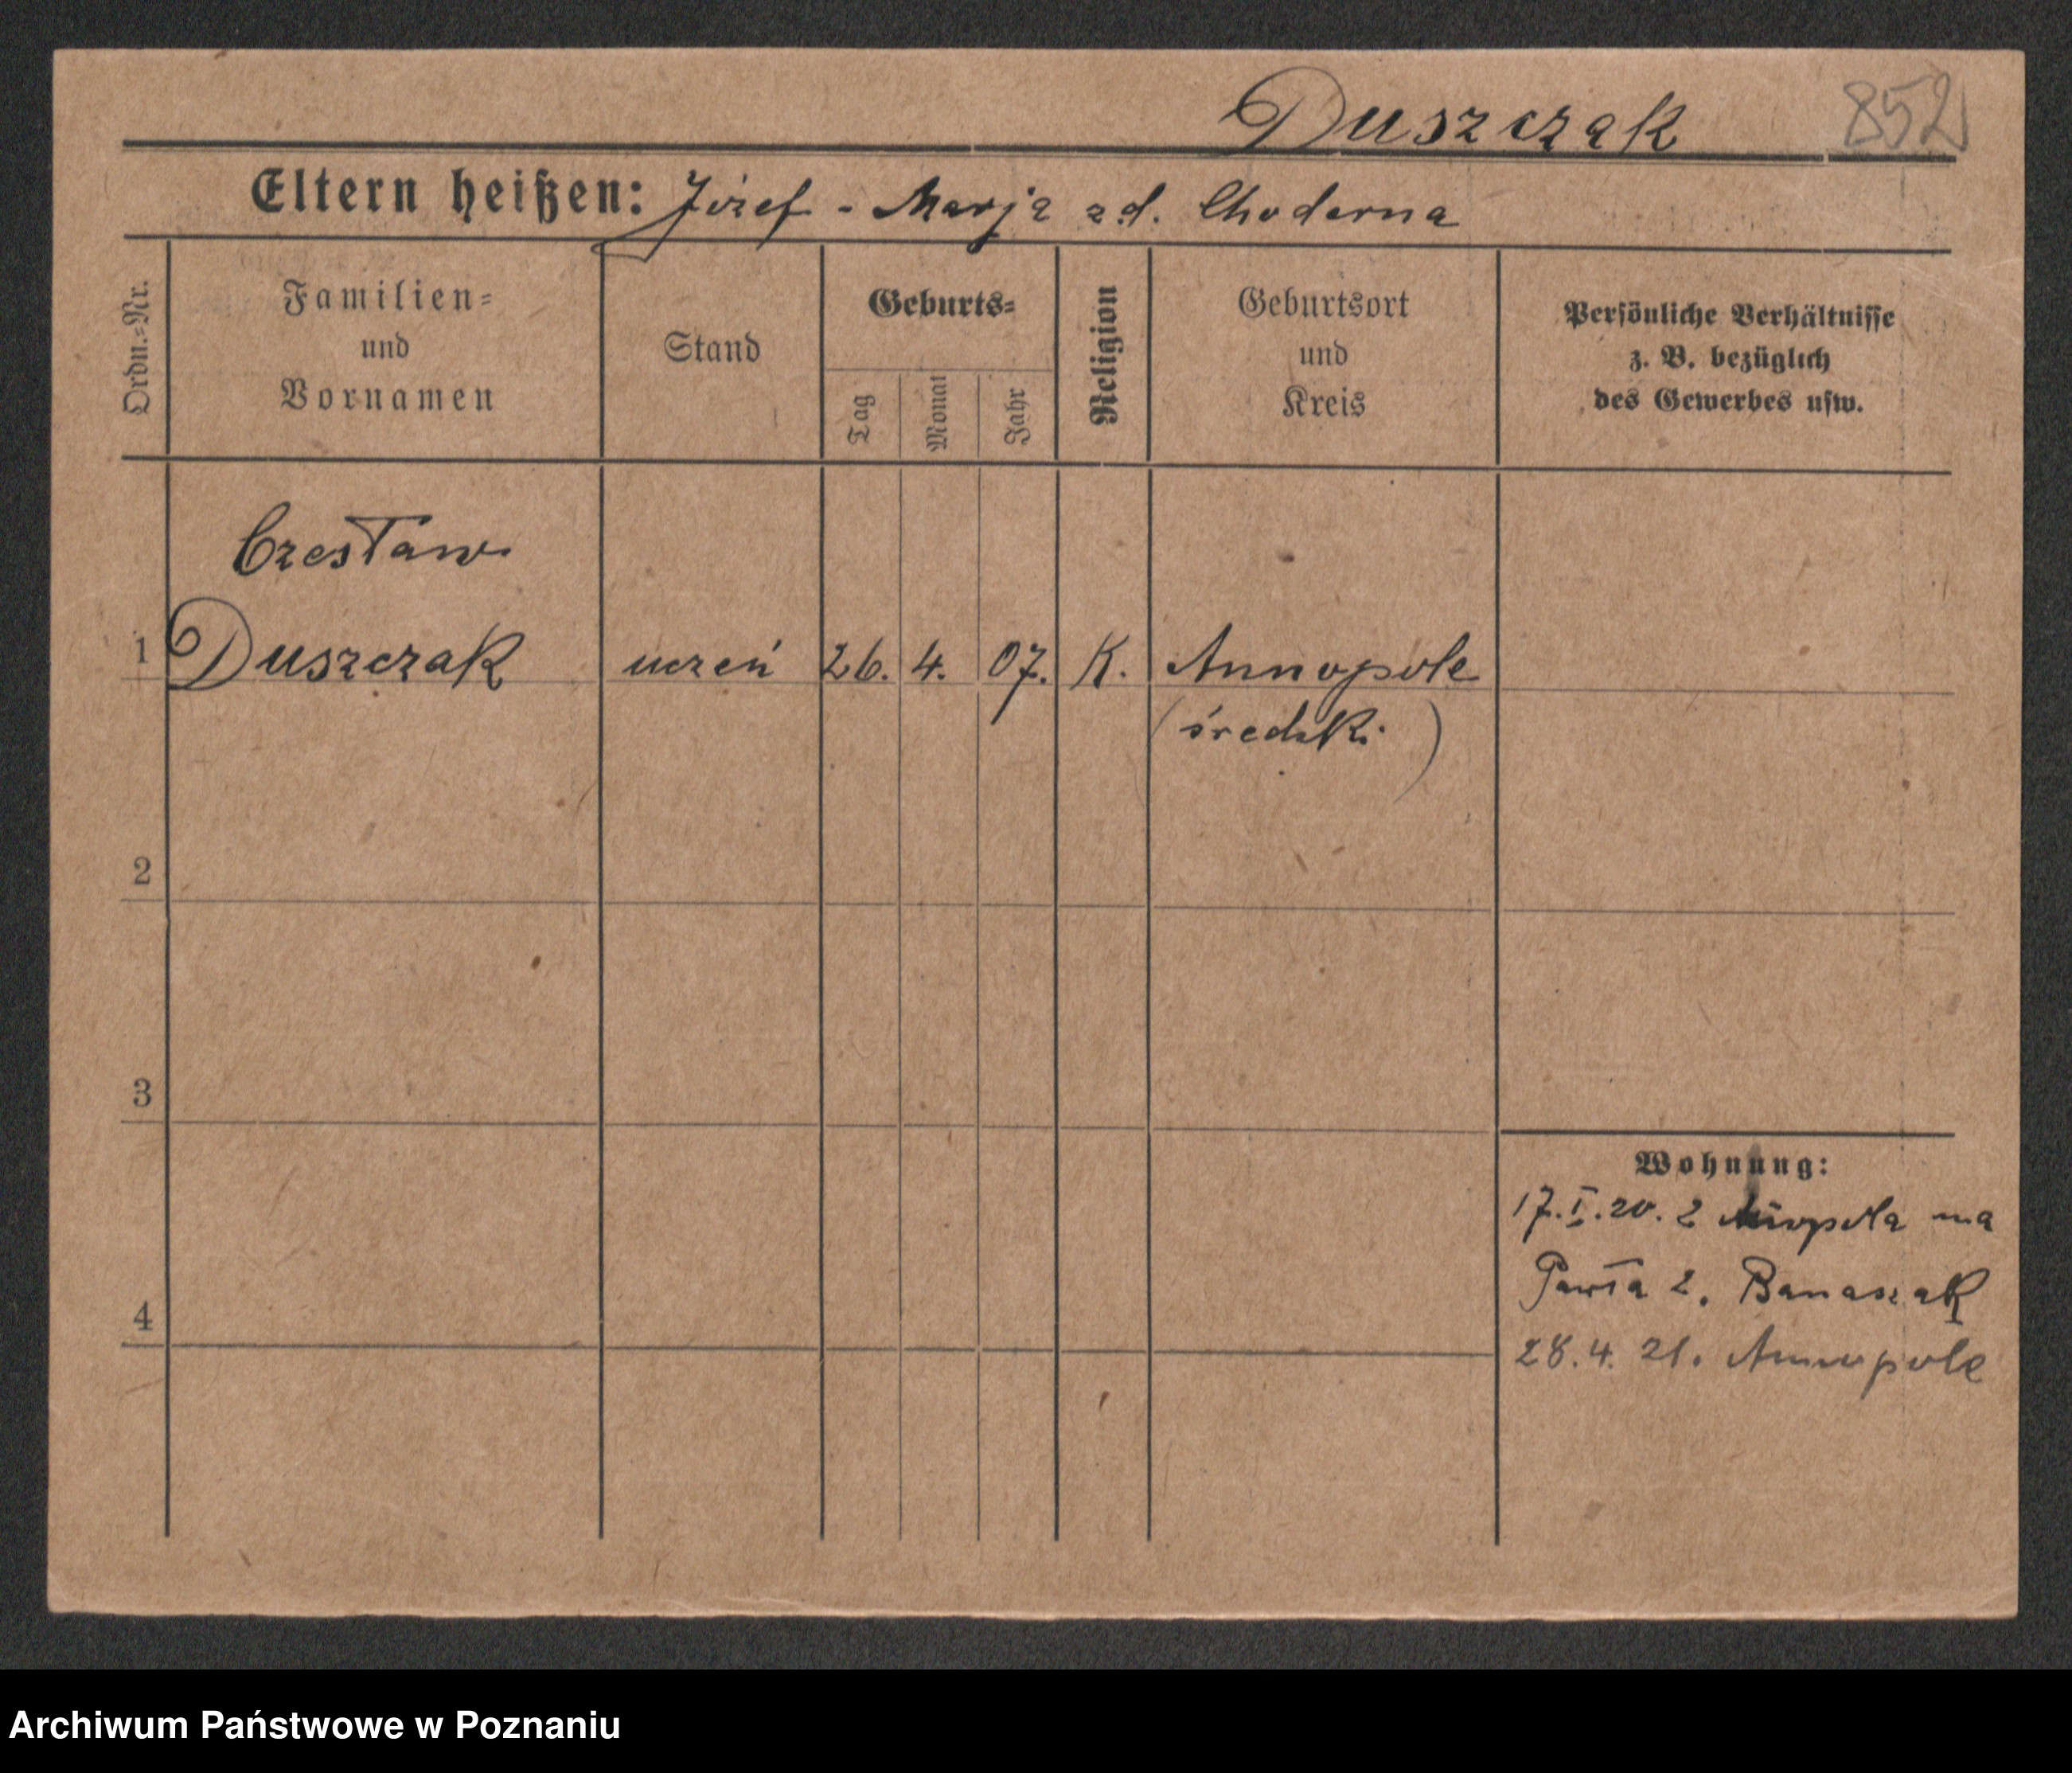 Duszczak 852
Eltern heißen: Józef - Marja z d. Choderna
Ordn.=Nr.
Familien=
und
Vornamen
Stand
Geburts=
Tag
Monat
Jahr
Religion
Geburtsort
und
Kreis
Persönliche Verhältnisse
z. B. bezüglich
des Gewerbes usw.
Czesław
1 Duszczak uczeń 26. 4. 07. K. Annopole
(średzki)
2
3
Wohnung:
17. I. 20. z na
Pawła 2. Banaszak
4
28. 4. 21. Annopole
Archiwum Państwowe w Poznaniu